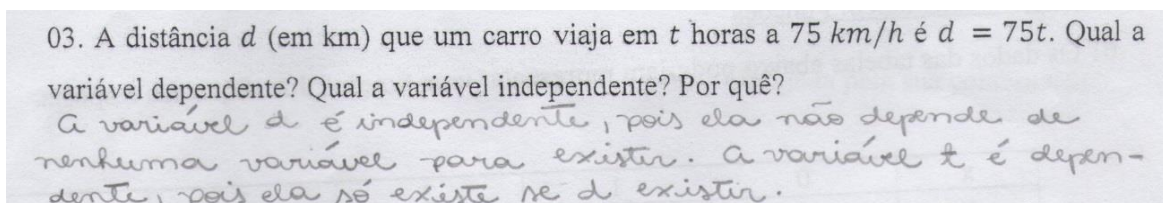 03. A distância d (em km) que um carro viaja em t horas a 75 km/h é d = 75t. Qual a
variável dependente? Qual a variável independente? Por quê?
a variável d é independente, pois ela não depende de
nenhuma variável para existir. a variável t é depen-
dente, pois ela só existe se d existir.